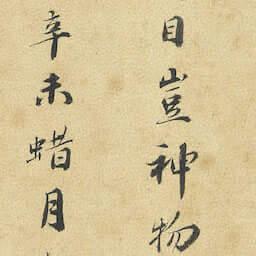 目豈神物
辛未蜡月